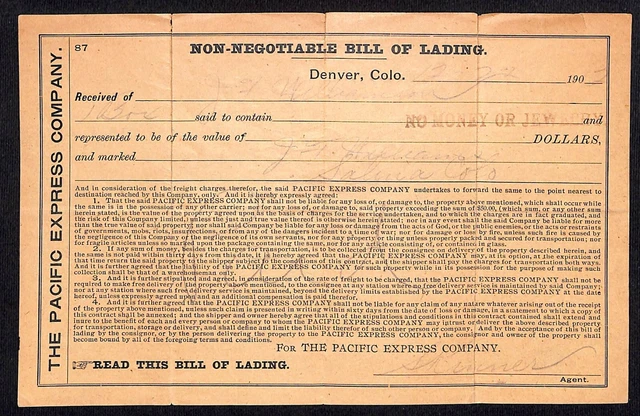 THE PACIFIC EXPRESS COMPANY.
87
NON-NEGOTIABLE BILL OF LADING.
Denver, Colo. 190
Received of
said to contain NO MONEY OR JEW and
represented to be of the value of DOLLARS,
and marked
And in consideration of the freight charges therefor, the said PACIFIC EXPRESS COMPANY undertakes to forward the same to the point nearest to
destination reached by this Company, only. And it is hereby expressly agreed:
1. That the said PACIFIC EXPRESS COMPANY shall not be liable for any loss of, or damage to, the property above mentioned, which shall occur while
the same is in the possession of any other carrier; nor for any loss of, or damage to, said property exceeding the sum of $50.00, (which sum, or any other sum
herein stated, is the value of the property agreed upon as the basis of charges for the service undertaken, and to which the charges are in fact graduated, and
the risk of this Company limited,) unless the just and true value thereof is otherwise herein stated; nor in any event shall the Company be liable for more
than the true value of said property; nor shall said Company be liable for any loss or damage from the acts of God, or the public enemies, or the acts or restraints
of governments, mobs, riots, insurrections, or from any of the dangers incident to a time of war; nor for damage or loss by fire, unless such fire is caused by
the negligence of this Company or of its own servants, nor for any property or thing unless properly packed and secured for transportation; nor
for fragile articles unless so marked upon the package containing the same, nor for any article consisting of, or contained in, glass.
2. If any sum of money, besides the charges for transportation, is to be collected from the consignee on delivery of the property described herein, and
the same is not paid within thirty days from this date, it is hereby agreed that the PACIFIC EXPRESS COMPANY may, at its option, at the expiration of
that time return the said property to the shipper subject to the conditions of this contract, and the shipper shall pay the charges for transportation both ways.
And it is further agreed that the liability of the PACIFIC EXPRESS COMPANY for such property while in its possession for the purpose of making such
collection shall be that of a warehouseman only.
3. And it is further stipulated and agreed, in consideration of the rate of freight to be charged, that the PACIFIC EXPRESS COMPANY shall not be
required to make free delivery of the property above mentioned, to the consignee at any station where no free delivery service is maintained by said Company;
nor at any station where such free delivery service is maintained, beyond the delivery limits established by the PACIFIC EXPRESS COMPANY at the date
hereof, unless expressly agreed upon and an additional compensation is paid therefor.
4. And it is further agreed that the PACIFIC EXPRESS COMPANY shall not be liable for any claim of any nature whatever arising out of the receipt
of the property above mentioned, unless such claim is presented in writing within sixty days from the date of loss or damage, in a statement to which a copy of
this contract shall be annexed; and the shipper and owner hereby agree that all of the stipulations and conditions in this contract contained shall extend and
inure to the benefit of each and every person or company to whom the PACIFIC EXPRESS COMPANY may intrust or deliver the above described property
for transportation, storage or delivery, and shall define and limit the liability therefor of such other person or company. And by the acceptance of this bill of
lading by the consignor, or by the person delivering the property to the PACIFIC EXPRESS COMPANY, the consignor and owner of the property shall
become bound by all of the foregoing terms and conditions.
FOR THE PACIFIC EXPRESS COMPANY.
READ THIS BILL OF LADING.
Agent.